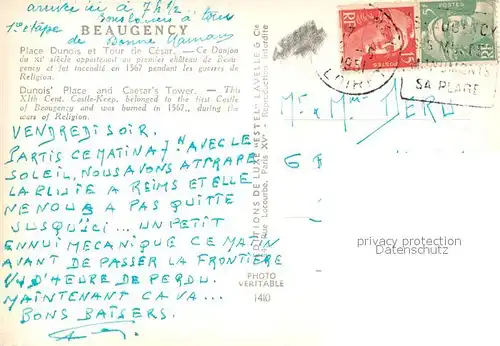 arrivée ici à 7h 1/2
bons baisers à tous
1e étape de Bonne Maman
BEAUGENCY
Place Dunois et Tour de César. — Ce Donjon
du XIe siècle appartenait au premier château de Beau-
gency et fut incendié en 1567 pendant les guerres de
Religion.
Dunois' Place and Caesar's Tower. — This
XIth Cent. Castle-Keep, belonged to the first Castle
of Beaugency and was burned in 1567, during the
wars of Religion.
VENDREDI SOIR.
PARTIS CE MATIN A 7H AVEC LE
SOLEIL, NOUS AVONS ATTRAPE
LA PLUIE A REIMS ET ELLE
NE NOUS A PAS QUITTE
JUSQU'ICI... UN PETIT
ENNUI MECANIQUE CE MATIN
AVANT DE PASSER LA FRONTIERE
1/4 D'HEURE DE PERDU.
MAINTENANT CA VA...
BONS BAISERS.
EDITIONS DE LUXE "ESTEL" LAVELLE & Cie
Rue Lecourbe, Paris XVe
PHOTO
VERITABLE
1410
RF
15F
LOIRET
SA PLAGE
Mr. Mme. DERU
6
protection property
Datenschutz